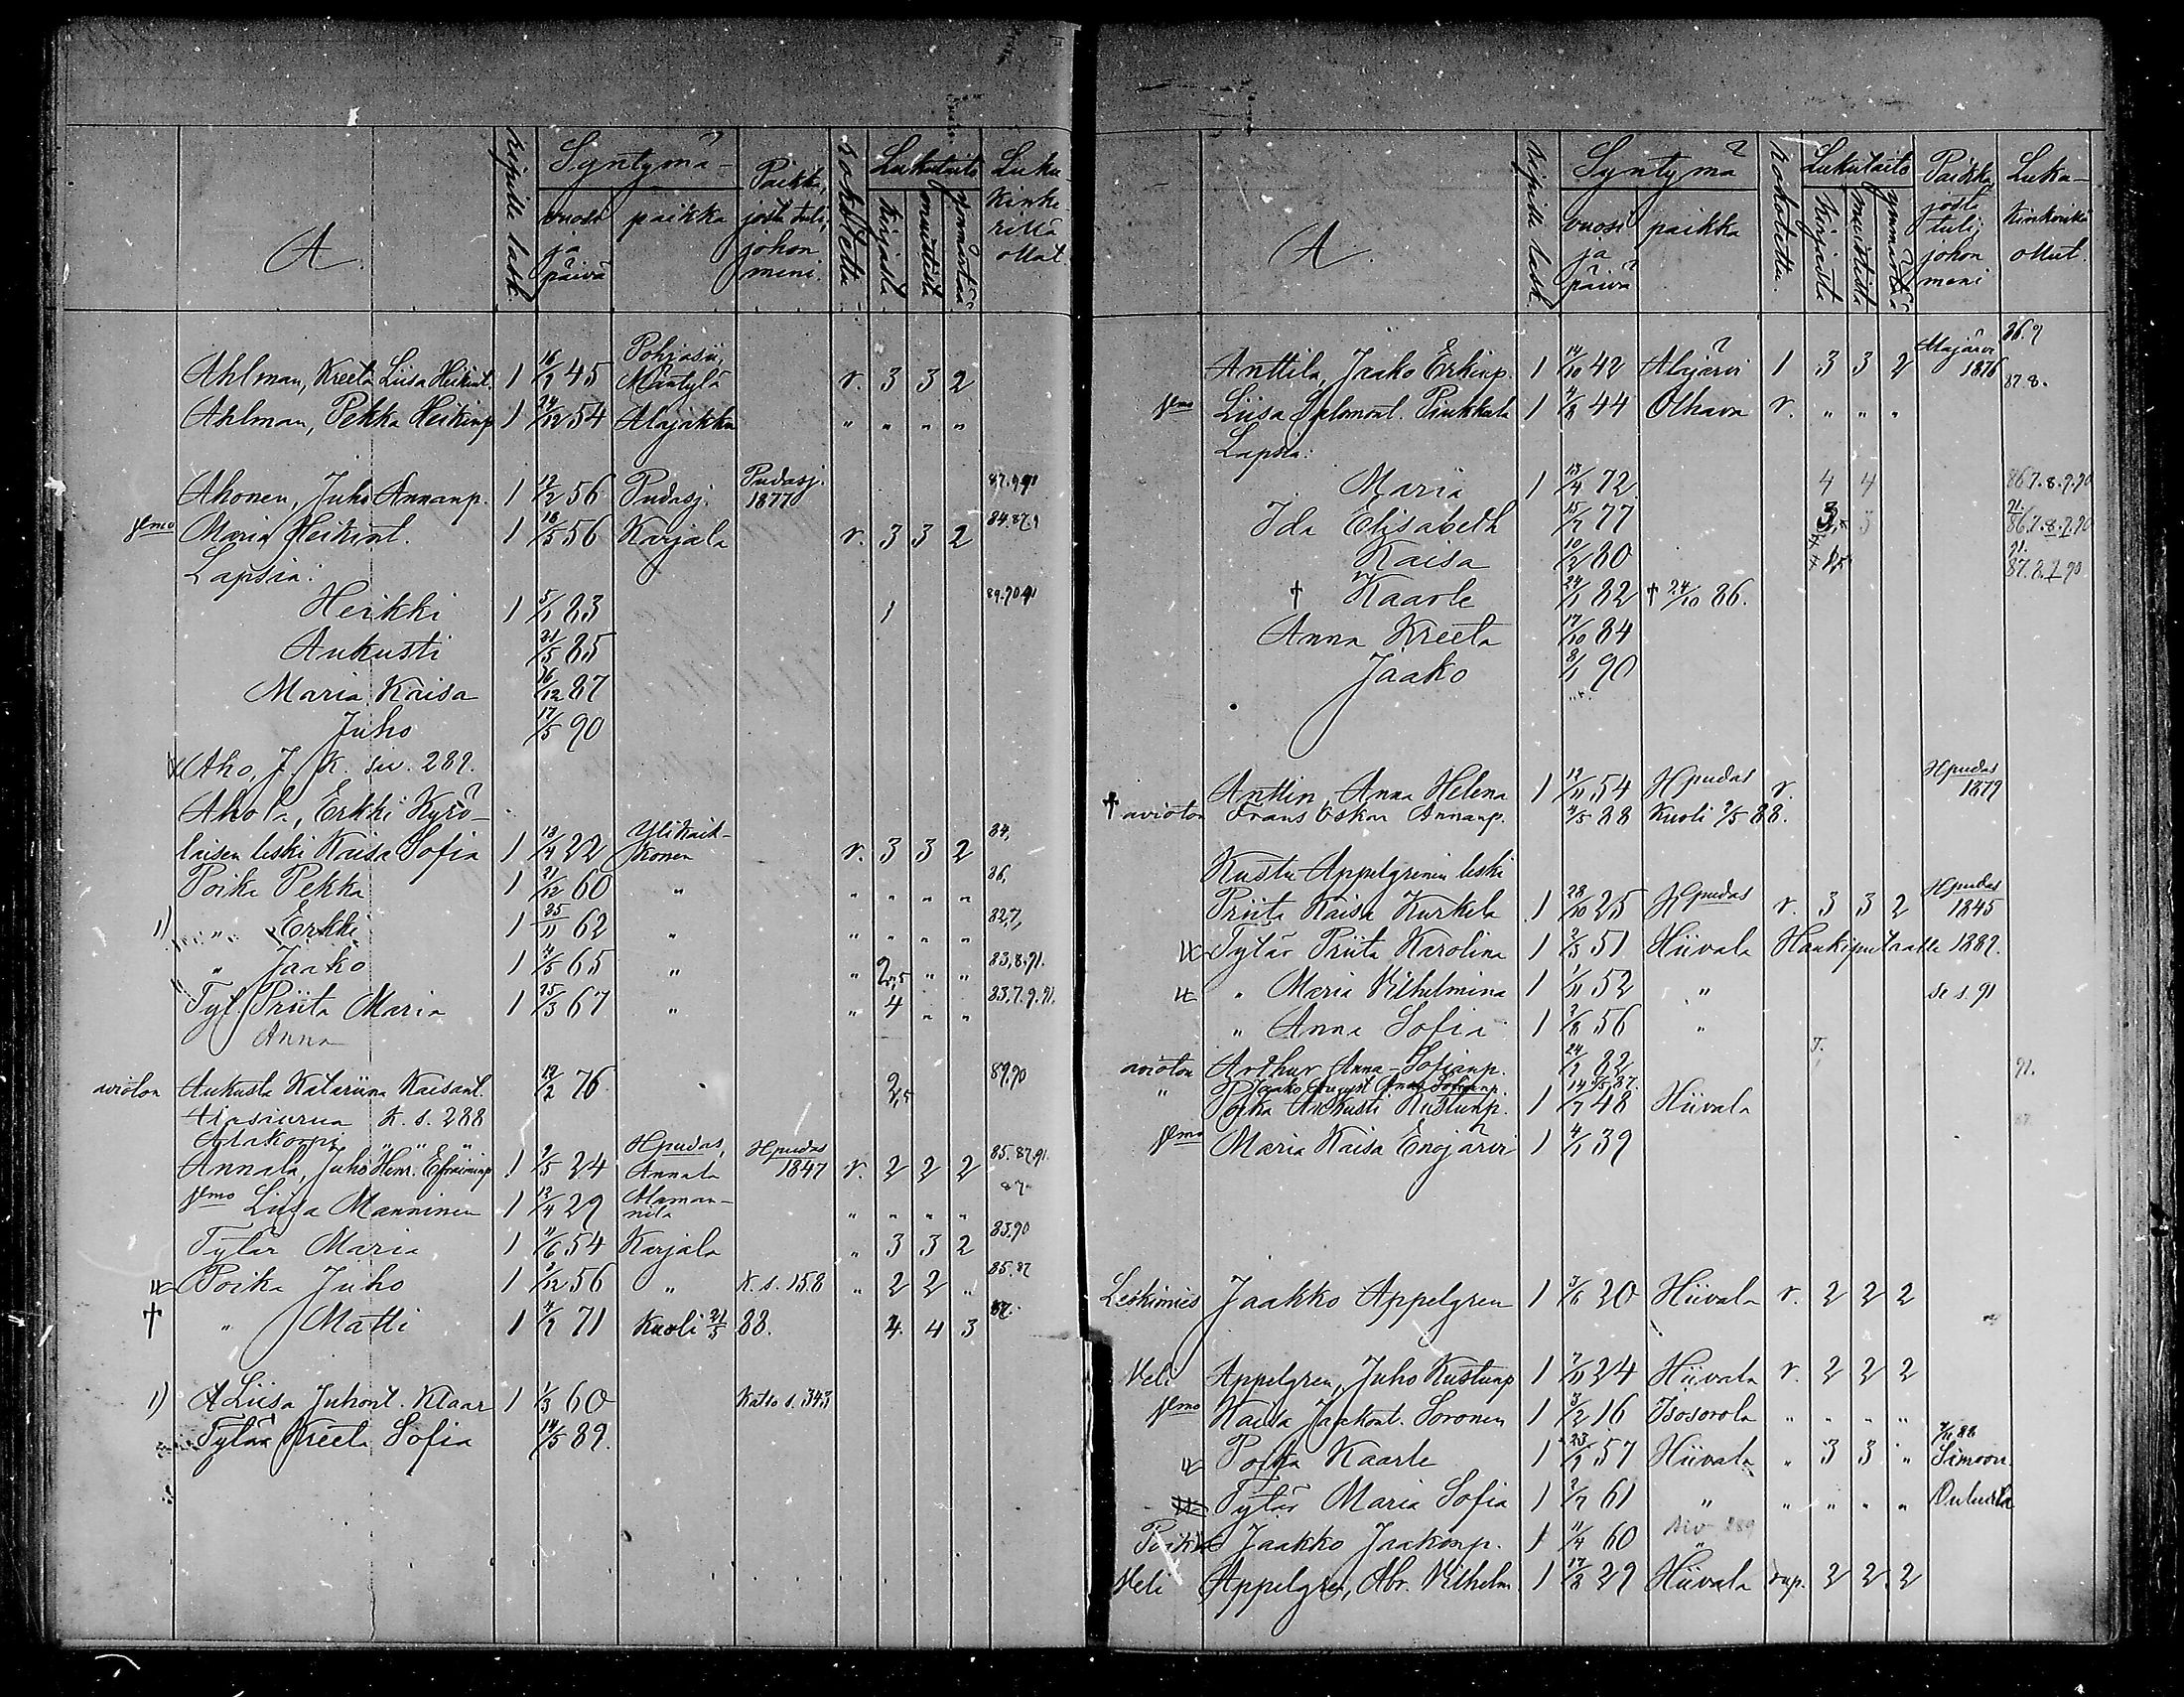 A.
Ripille lask.
Syntymä-
vuosi ja päivä
paikka
Paikka, josta tuli, johon meni.
rokotettu
Lukutaito
kirjasta
muistista
ymmärtää
Luku-kinkerillä ollut.
Ahlman, Kreeta Liisa Heikint. 1 16/1 45 Pohjasii, Mäntylä r. 3 3 2
Ahlman, Pekka Heikinp 1 24/12 54 Alajakku " " " "
Ahonen, Juho Annanp. 1 12/2 56 Pudasj. Pudasj. 1877 87.9.91
Vmo Maria Heikint. 1 18/5 56 Karjala r. 3 3 2 84.87.9
Lapsia:
Heikki 1 5/1 83 1 89.90.91
Aukusti 21/5 85
Maria Kaisa 16/12 87
Juho 17/5 90
Aho, J. K. siv. 289.
Ahola, Erkki Kyrö-
laisen leski Kaisa Sofia 1 13/4 22 Ylikaik-konen r. 3 3 2 84,
Poika Pekka 1 21/12 60 " " " " " 86,
1) " Erkki 1 25/11 62 " " " " " 82,7,
" Jaako 1 4/5 65 " " 2,5 " " 83,8.91.
Tyt. Priita Maria 1 25/3 67 " " 4 " " 83.7.9.91.
Anna
avioton Aukusta Katariina Kaisant. 12/2 76. 2,5 89,90
K. s. 288
Alakorpi " " "
Annala, Juho Henr. Efraiminp 1 2/5 24 Hpudas, Annala Hpudas 1847 r. 2 2 2 85.87.91.
Vmo Liisa Manninen 1 13/4 29 Alaman-nila " " " " 87
Tytär Maria 1 11/6 54 Karjala " 3 3 2 83.90
Poika Juho 1 2/12 56 " K. s. 158 " 2 2 " 85.87
† " Matti 1 4/7 71 Kuoli 21/5 88. 4 4 3 87.
1) A Liisa Juhont. Klaar 1 1/3 60 Katso s. 343
Tytär Kreeta Sofia 14/5 89.
A.
Ripille lask.
Syntymä
vuosi ja päivä
paikka
rokotettu.
Lukutaito
kirjasta
muistista
ymmärtää
Paikka josta tuli, johon meni
Luku-kinkerillä ollut.
Anttila, Jaako Erkinp. 1 14/10 42 Alajärvi 1 3 3 2 Alajärvi 1876 86.9 87.8.
Vmo Liisa Salomont. Pinkkala 1 4/8 44 Olhava r. " " "
Lapsia:
Maria 1 13/4 72. 4 4 86.7.8.9.90
Ida Elisabeth 15/7 77 3,5 3 91. 86.7.8.9.90
Kaisa 10/2 80 2,5 91. 87.8.9.90
† Kaarle 24/1 82 † 24/10 86.
Anna Kreeta 17/10 84
Jaako 8/1 90
Anttin, Anna Helena 1 12/11 54 Hpudas r. Hpudas 1879
† avioton Frans Oskar Annanp. 2/5 88 Kuoli 9/5 88.
Kustu Appelgrenin leski
Priita Kaisa Kurkela 1 28/10 25 Hpudas r. 3 3 2 Hpudas 1845
Tytär Priita Karolina 1 2/3 51 Hiivala Haukiputaalle 1889.
" Maria Vilhelmina 1 1/11 52 " se s. 91
" Anna Sofia 1 3/8 56 "
avioton Arthur Anna-Sofianp. 24/2 82 91.
" Jaako August Anna Sofianp. 14/5 87.
Poika Aukusti Kustunp. 1 1/7 48 Hiivala
Vmo Maria Kaisa Enojärvi 1 4/1 39
Leskimies Jaakko Appelgren 1 3/6 20 Hiivala r. 2 2 2
Veli Appelgren, Juho Kustunp 1 7/11 24 Hiivala r. 2 2 2
Vmo Kaisa Jaakont. Soronen 1 3/2 16 Isosorola " " " "
Poika Kaarle 1 23/7 57 Hiivala " 3 3 " 7/11 88 Simoon.
Tytär Maria Sofia 1 3/7 61 " " " " " Ouluista
Poika Jaakko Jaakonp. 1 11/4 60 " siv 289
Veli Appelgren, Abr. Vilhelm. 1 17/8 29 Hiivala rup. 2 2 2